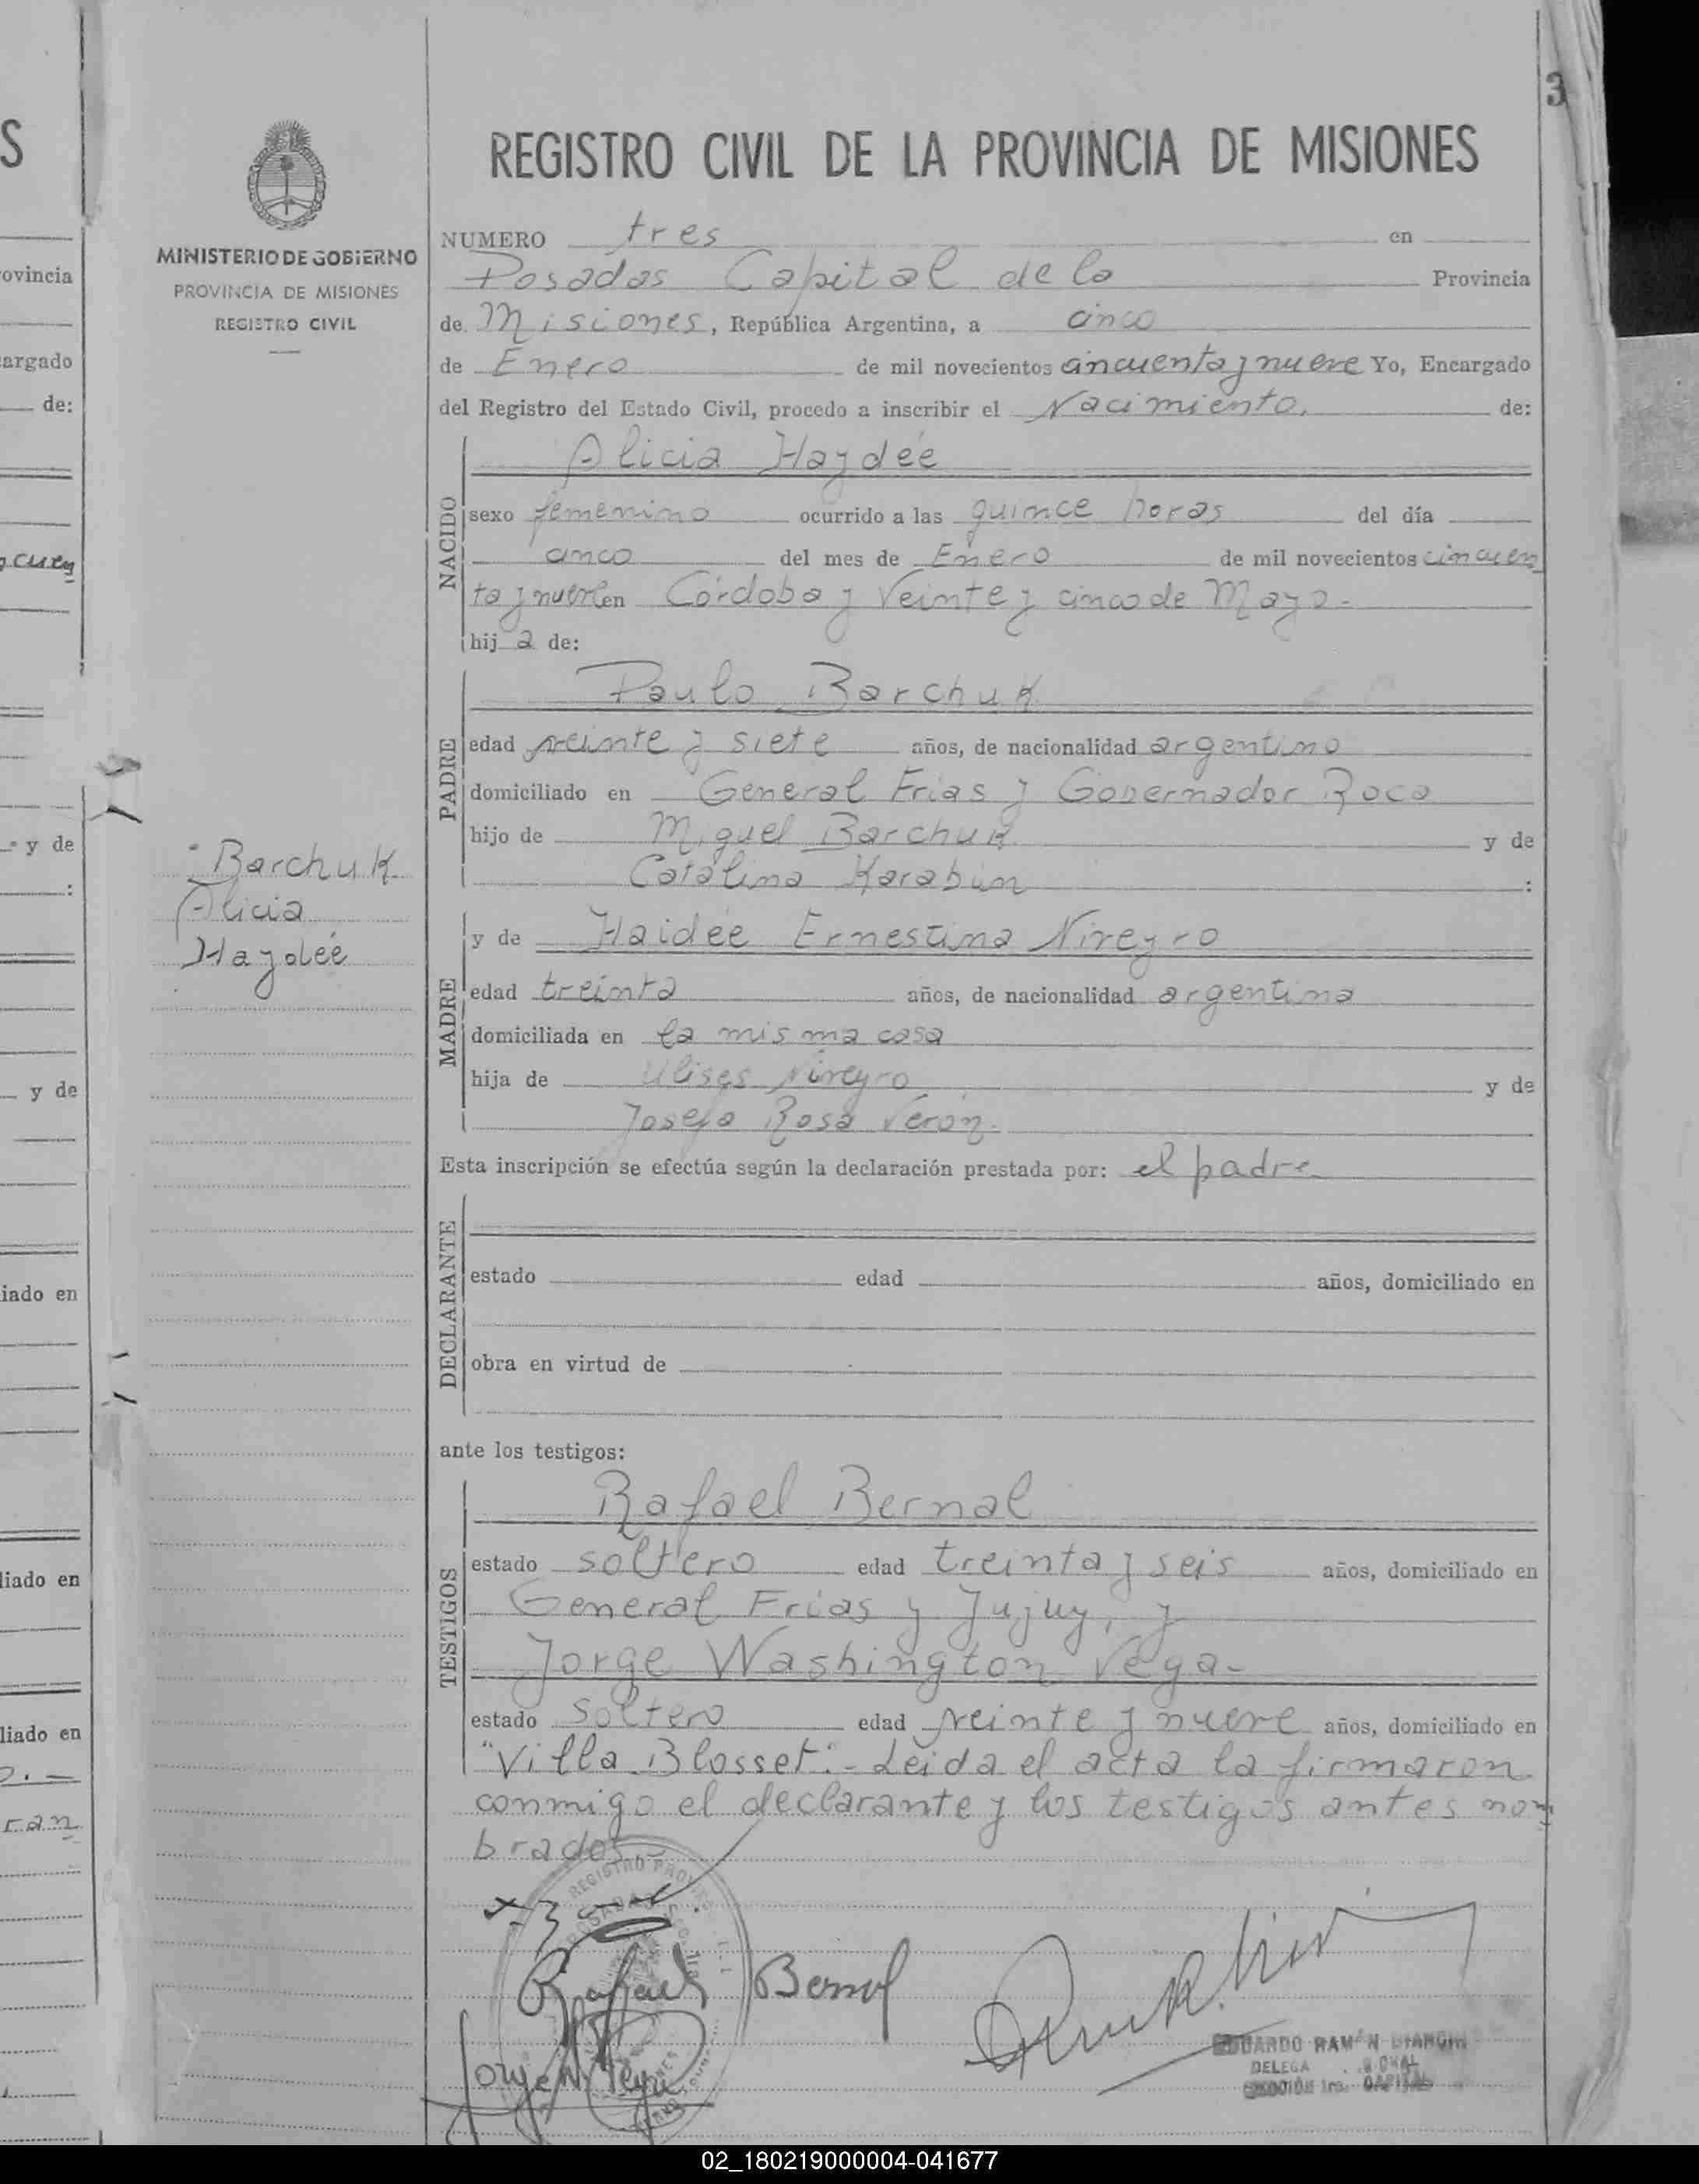 3
S
ovincia
argado
de:
cuen
y de
:
y de
iado en
liado en
liado en
ran
MINISTERIO DE GOBIERNO
PROVINCIA DE MISIONES
REGISTRO CIVIL
Barchuk
Alicia
Haydée
REGISTRO CIVIL DE LA PROVINCIA DE MISIONES
NUMERO tres en
Posadas Capital de la Provincia
de Misiones, República Argentina, a cinco
de Enero de mil novecientos cincuenta y nueve Yo, Encargado
del Registro del Estado Civil, procedo a inscribir el Nacimiento. de:
NACIDO
Alicia Haydée
sexo femenino ocurrido a las quince horas del día
cinco del mes de Enero de mil novecientos cincuen
ta y nueve en Córdoba y Veinte y cinco de Mayo.-
hij a de:
PADRE
Paulo Barchuk
edad veinte y siete años, de nacionalidad argentino
domiciliado en General Frias y Gobernador Roca
hijo de Miguel Barchuk y de
Catalina Karabin :
MADRE
y de Haidée Ernestina Nireyro
edad treinta años, de nacionalidad argentina
domiciliada en la misma casa
hija de Ulises Nireyro y de
Josefa Rosa Verón.
Esta inscripción se efectúa según la declaración prestada por: el padre
DECLARANTE
estado edad años, domiciliado en
obra en virtud de
ante los testigos:
TESTIGOS
Rafael Bernal
estado soltero edad treinta y seis años, domiciliado en
General Frias y Jujuy, y
Jorge Washington Vega-
estado soltero edad veinte y nueve años, domiciliado en
"Villa Blosset".- Leida el acta la firmaron
conmigo el declarante y los testigos antes nom
brados.-
REGISTRO
POSADAS
Rafael Bernal
Jorge W Vega
EDUARDO RAMÓN
CAPITAL
02_180219000004-041677